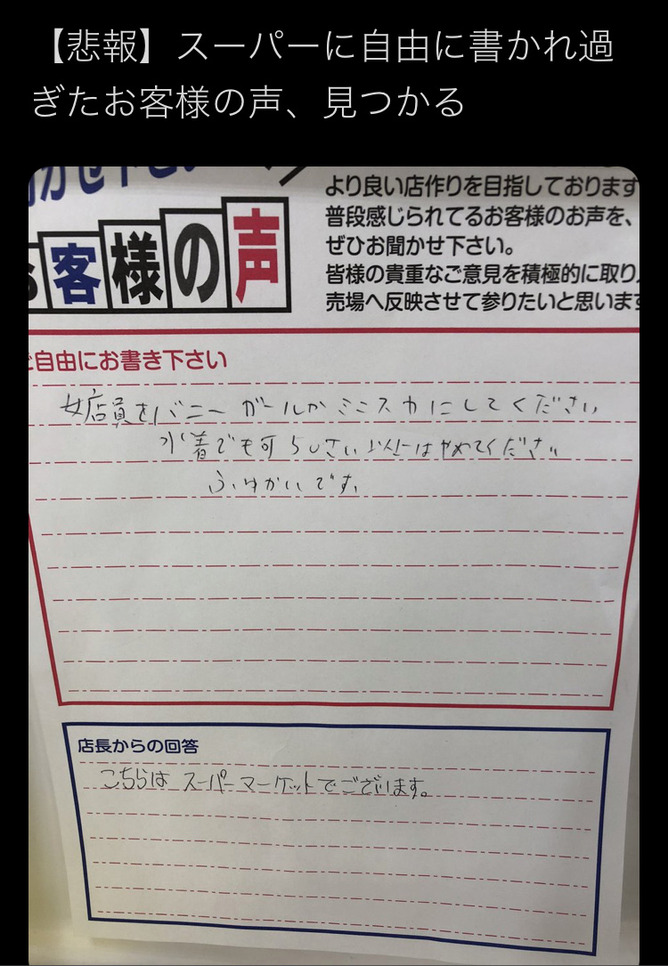 【悲報】スーパーに自由に書かれ過
ぎたお客様の声、見つかる
より良い店作りを目指しております
普段感じられてるお客様のお声を、
ぜひお聞かせ下さい。
皆様の貴重なご意見を積極的に取り
売場へ反映させて参りたいと思います
お客様の声
ご自由にお書き下さい
女店員をバニーガールかミニスカにしてください
水着でも可 らしさい以上はやめてください
ふゆかいです。
店長からの回答
こちらは スーパーマーケットでございます。